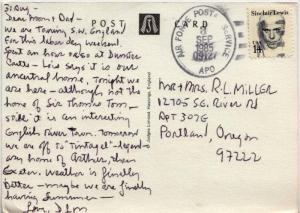 31 Aug -
Dear Mom & Dad -
We are touring S.W. England
for this labor day weekend.
Spent an hour or so at Dunster
Castle - Lois says it is our
ancestral home. Tonight we
are here - although not the
home of Sir Thomas Tom,
still it is an interesting
English River Town. Tomorrow
we are off to "Tintagel" - legend-
ary home of Arthur, then
Exeter. Weather is finally
better - maybe we are finally
having Summer -
Love,
POST CARD
Judges Limited, Hastings, England
AIR FORCE POSTAL SERVICE
SEP
1985
09127
APO
Sinclair Lewis
14
Mr & Mrs. R.L. Miller
12705 SE. River Rd
Apt 307G
Portland, Oregon
97222